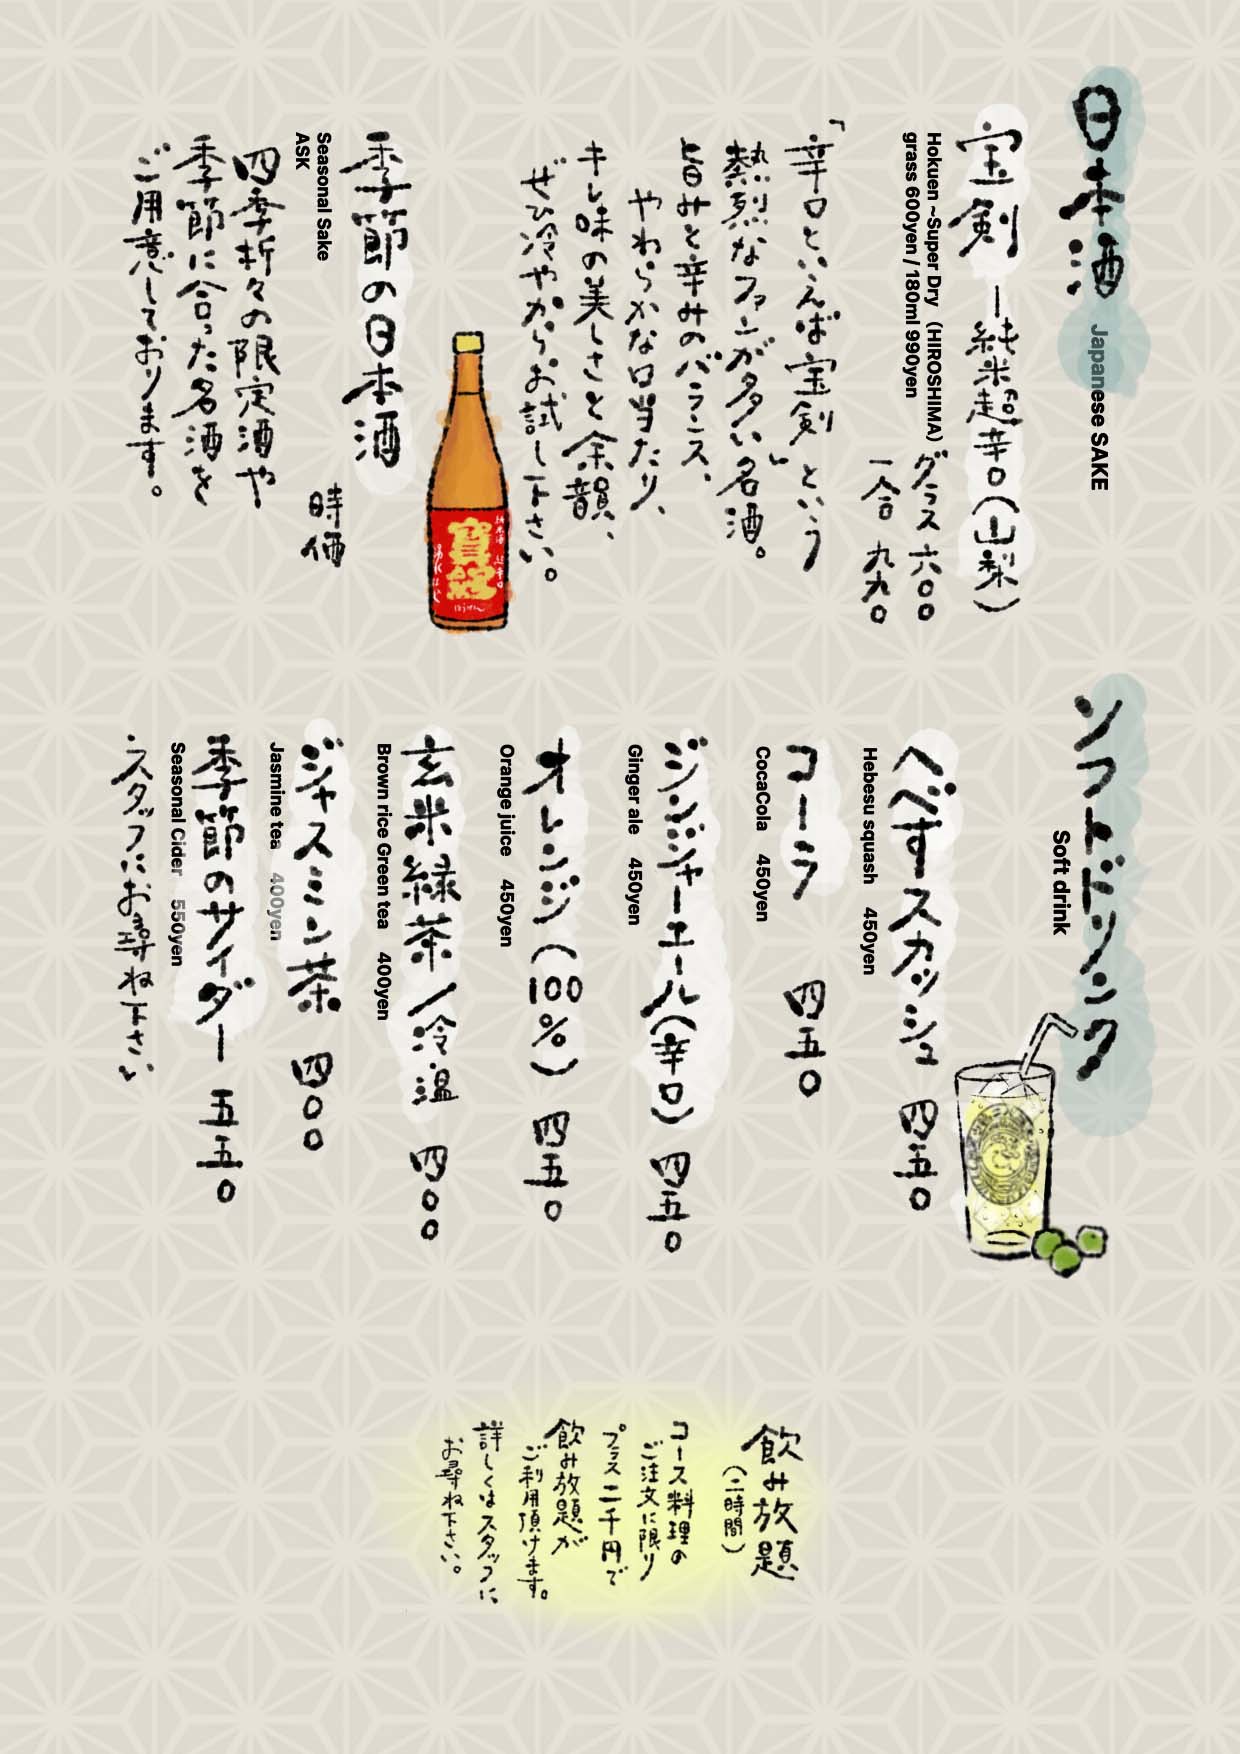 日本酒
Japanese SAKE
宝剣 ー純米超辛口(山梨)
Hokuen ~Super Dry (HIROSHIMA)
grass 600yen / 180ml 990yen
グラス 六〇〇
一合 九九〇
「辛口といえば宝剣」という
熱烈なファンが多い名酒。
旨みと辛みのバランス、
やわらかな口当たり、
キレ味の美しさと余韻、
ぜひ冷やからお試し下さい。
季節の日本酒
Seasonal Sake
ASK
時価
四季折々の限定酒や
季節に合った名酒を
ご用意しております。
純米酒 超辛口
寶剣
湧水仕込
ほうけん
ソフトドリンク
Soft drink
へべすスカッシュ 四五〇
Hebesu squash 450yen
コーラ 四五〇
CocaCola 450yen
ジンジャーエール(辛口) 四五〇
Ginger ale 450yen
オレンジ(100%) 四五〇
Orange juice 450yen
玄米緑茶/冷・温 四〇〇
Brown rice Green tea 400yen
ジャスミン茶 四〇〇
Jasmine tea 400yen
季節のサイダー 五五〇
Seasonal Cider 550yen
・スタッフにお尋ね下さい
飲み放題
(二時間)
コース料理の
ご注文に限り
プラス二千円で
飲み放題が
ご利用頂けます。
詳しくはスタッフに
お尋ね下さい。